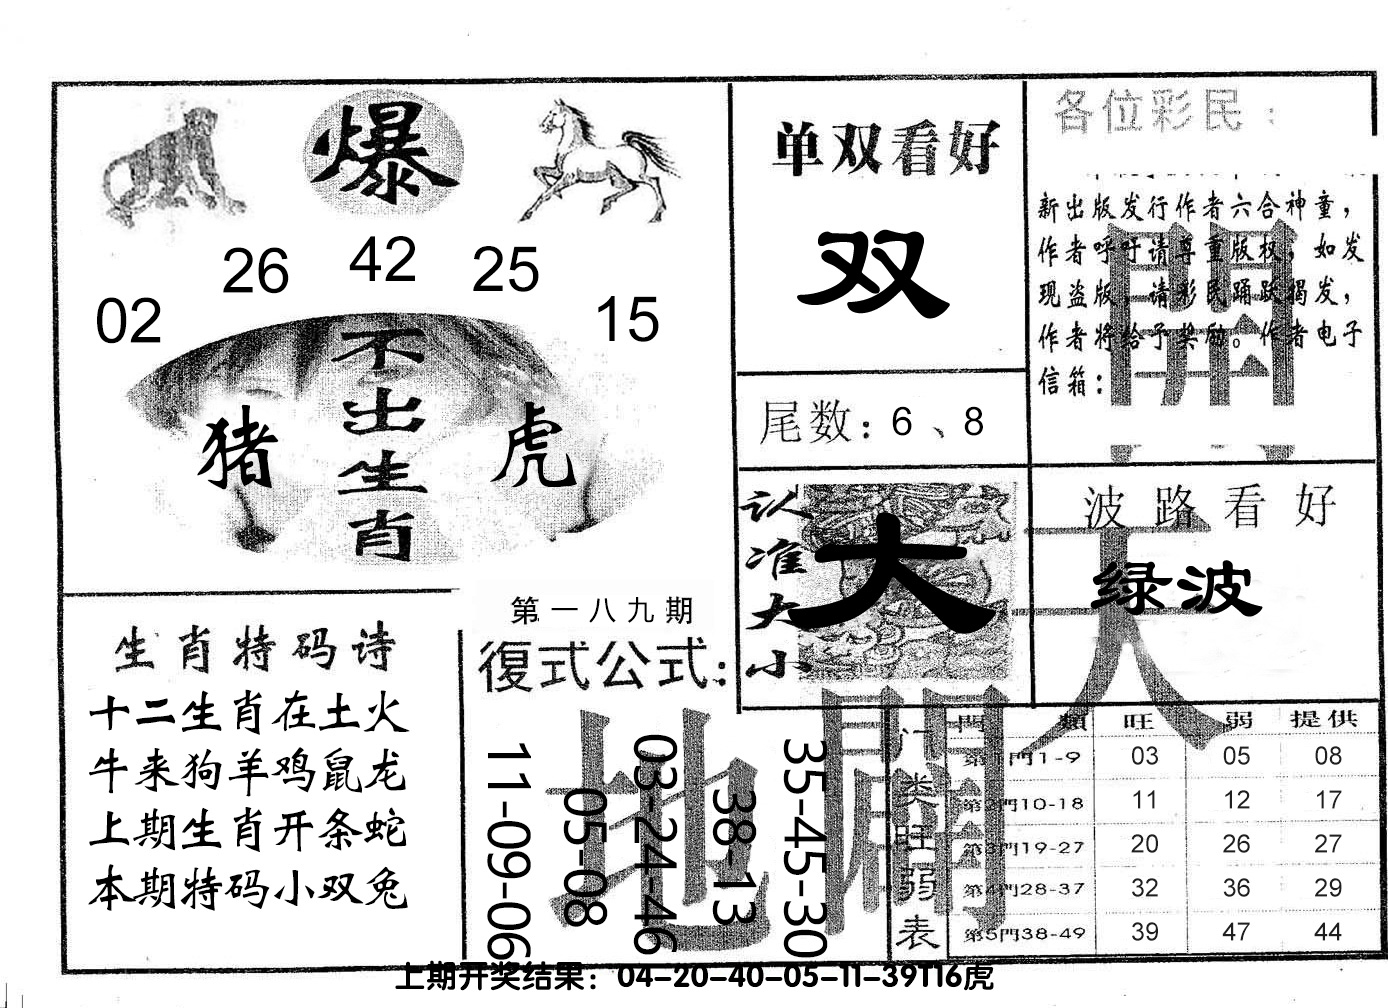 爆
26 42 25
02 15
不出生肖
猪 虎
单双看好
双
尾数：6、8
各位彩民：
新出版发行作者六合神童，
作者呼吁请尊重版权，如发
现盗版，请彩民踊跃揭发，
作者将给予奖励。作者电子
信箱：
開
天
認准大小
大
波路看好
绿波
生肖特码诗
十二生肖在土火
牛来狗羊鸡鼠龙
上期生肖开条蛇
本期特码小双兔
第一八九期
復式公式：
地
開
11-09-06
05-08
03-24-46
38-13
35-45-30
门类旺弱表
門類 旺 弱 提供
第1門1-9 03 05 08
第2門10-18 11 12 17
第3門19-27 20 26 27
第4門28-37 32 36 29
第5門38-49 39 47 44
上期开奖结果：04-20-40-05-11-39T16虎